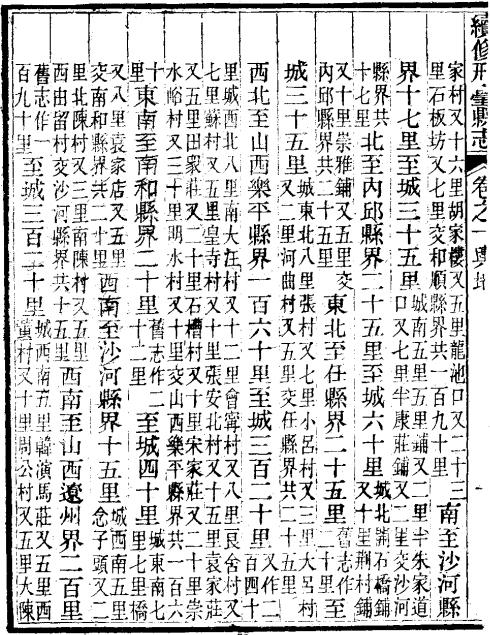 續修邢臺縣志 卷之一 輿地
家村又十六里胡家樓又五里龍池口又二十三
里石板坊又七里交和順縣界共一百九十里
南至沙河縣
界十七里至城三十五里
城南五里五里鋪又二里半朱家道
口又七里半康莊鋪又二里交沙河
縣界共
十七里
北至內邱縣界二十五里至城六十里
城北 石橋鋪
又十里荆村鋪
又十里崇雅鋪又五里交
內邱縣界共二十五里
東北至任縣界二十五里
舊志作
二十里
至
城三十五里
城東北八里張村又七里小呂村又三里大呂村
又二里河曲村又五里交任縣界共二十五里
西北至山西樂平縣界一百六十里至城三百二十里
又作二
百四十
里城西北八里南大汪村又十二里會寧村又八里良舍村又
七里蘇村又五里皇寺村又十里張安北村又十五里袁家莊
又五里田家莊又二十里石槽村又十里宋家莊又二十里崇
水峪村又三十里明水村又十里交山西樂平縣界共一百六
十
里
東南至南和縣界二十里
舊志作二
十二里
至城四十里
城東南七
里七里橋
又八里袁家店又五里
交南和縣界共二十里
西南至沙河縣界十五里
城西南五里
念子頭又二
里北陳村又三里南陳村又五里
西由留村交沙河縣界共十五里
西南至山西遼州界二百里
舊志作一
百九十里
至城三百二十里
城西南五里韓演馬莊又五里西
董村又十里周公村又五里大陳